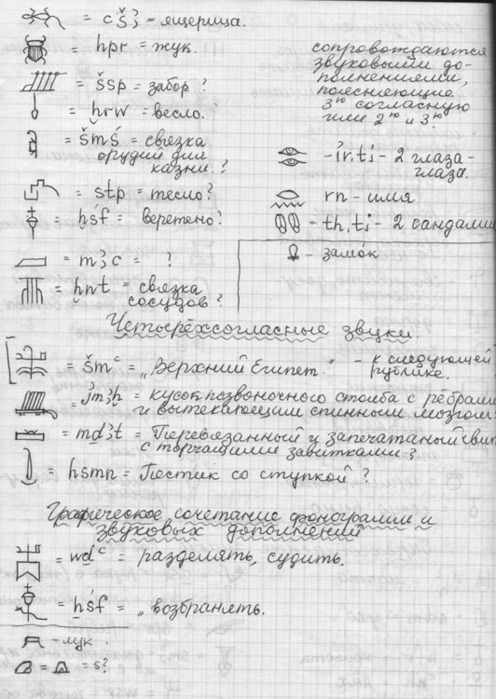 = cšꜣ – ящерица.
= ḫpr – жук.
= šsp = забор?
= ḫrw = весло.
= šmś = связка
орудий для
казни.?
= stp = тесло?
= ḫśf = веретено?
= mꜣc = ?
= ḫnt = связка
сосудов?
сопровождаются
звуковыми до-
полнениями,
поясняющие
3ю согласную
или 2ю и 3ю.
– ir.tj – 2 глаза-
глаза.
rn – имя
– tb.tj – 2 сандалии
– замок
Четырёхсогласные звуки
= šmc = „Верхний Египет." – к следующей
рублике.
= jmꜣḫ = кусок позвоночного столба с ребрами
и вытекающим спинным мозгом.
= mḏꜣt = Перевязанный и запечатаный свит
с торчащими завитками?
= hsmn = Пестик со ступкой?
Графическое сочетание фонограмм и
звуковых дополнений
= wḏc = разделять, судить.
= ḫśf = „ возбранять.
– лук.
= = s?